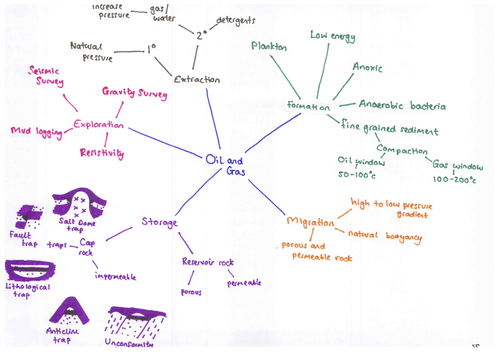 increase
pressure
gas/
water
detergents
2°
Natural
pressure
1°
Extraction
Seismic
Survey
Gravity Survey
Exploration
Mud logging
Resistivity
Plankton
Low energy
Anoxic
Formation
Anaerobic bacteria
fine grained sediment
Compaction
Oil window
50-100°c
Gas window
100-200°c
Oil and
Gas
Migration
high to low pressure
gradient
natural buoyancy
porous and
permeable rock
Storage
Reservoir rock
porous
permeable
Cap
rock
impermeable
traps
Salt Dome
trap
Fault
trap
Lithological
trap
Anticline
trap
Unconformity